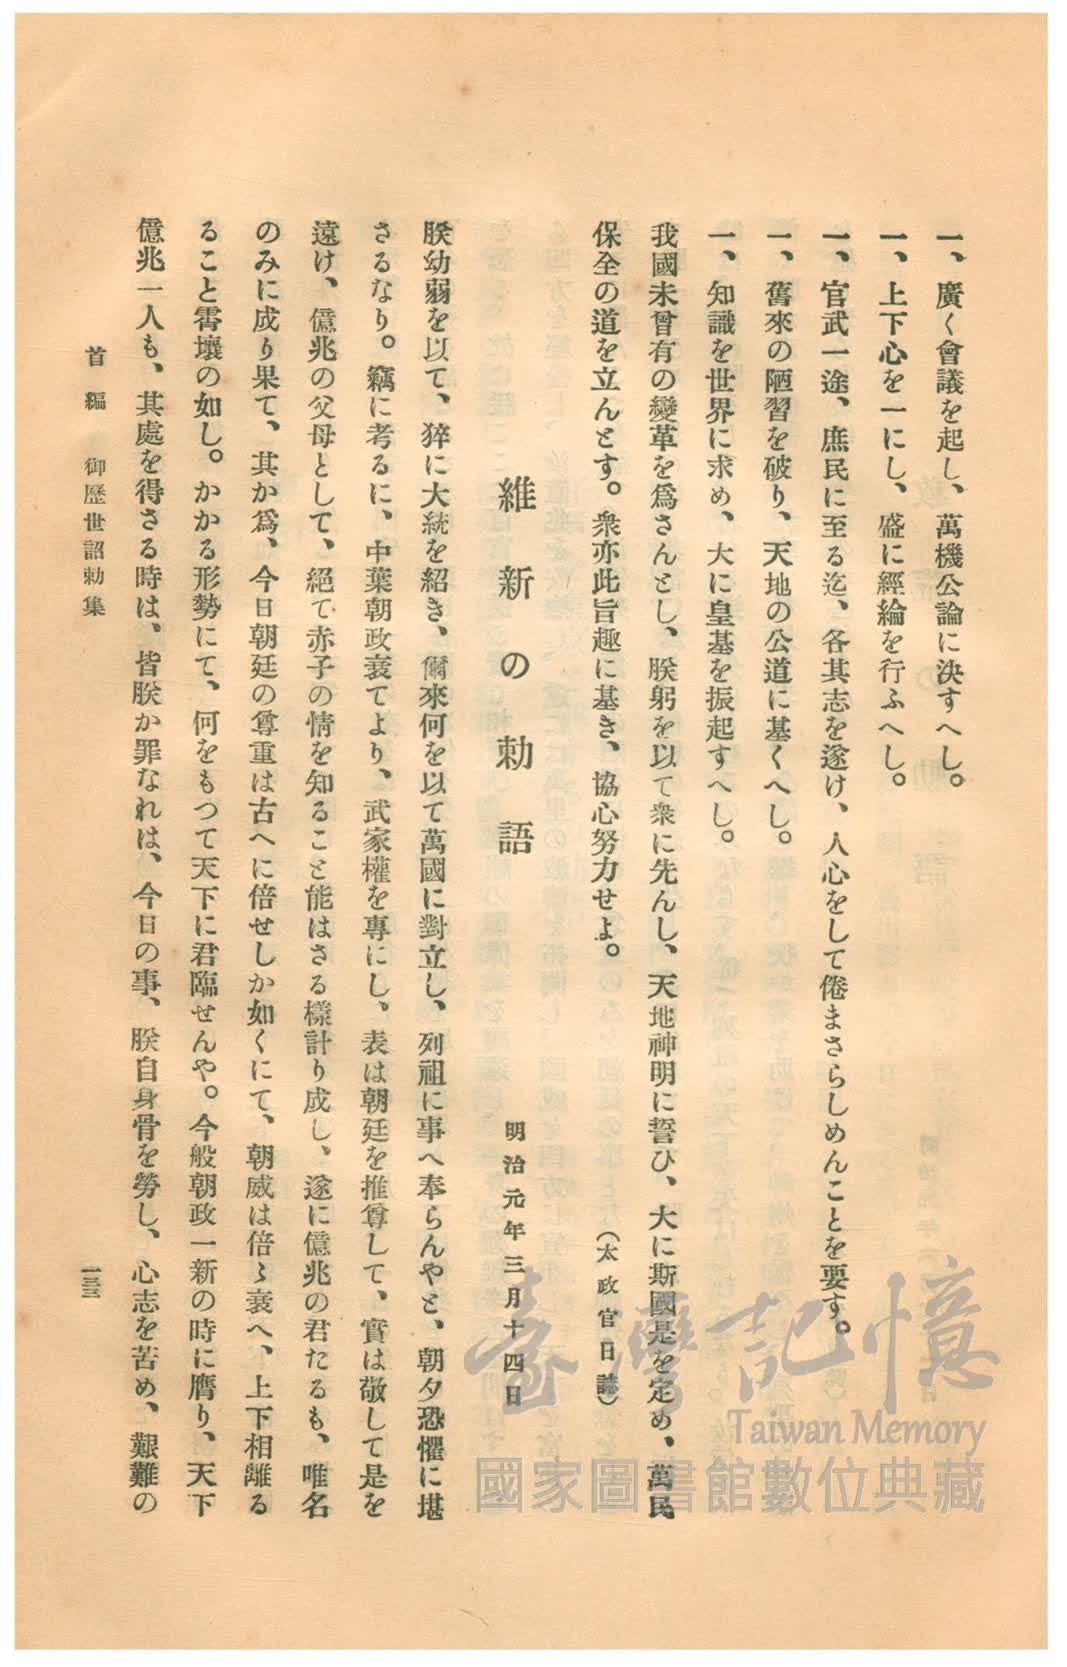 一、廣く會議を起し、萬機公論に決すへし。
一、上下心を一にし、盛に經綸を行ふへし。
一、官武一途、庶民に至る迄、各其志を遂け、人心をして倦まさらしめんことを要す。
一、舊來の陋習を破り、天地の公道に基くへし。
一、知識を世界に求め、大に皇基を振起すへし。
我國未曾有の變革を爲さんとし、朕躬を以て衆に先んし、天地神明に誓ひ、大に斯國是を定め、萬民
保全の道を立んとす。衆亦此旨趣に基き、協心努力せよ。
（太政官日誌）
維新の勅語
明治元年三月十四日
朕幼弱を以て、猝に大統を紹き、爾來何を以て萬國に對立し、列祖に事へ奉らんやと、朝夕恐懼に堪
さるなり。竊に考るに、中葉朝政衰てより、武家權を專にし、表は朝廷を推尊して、實は敬して是を
遠け、億兆の父母として、絕て赤子の情を知ること能はさる樣計り成し、遂に億兆の君たるも、唯名
のみに成り果て、其か爲、今日朝廷の尊重は古へに倍せしか如くにて、朝威は倍〻衰へ、上下相離る
ること霄壤の如し。かかる形勢にて、何をもつて天下に君臨せんや。今般朝政一新の時に膺り、天下
億兆一人も、其處を得さる時は、皆朕か罪なれは、今日の事、朕自身骨を勞し、心志を苦め、艱難の
首編　御歷世詔勅集
一三三
臺灣記憶
Taiwan Memory
國家圖書館數位典藏